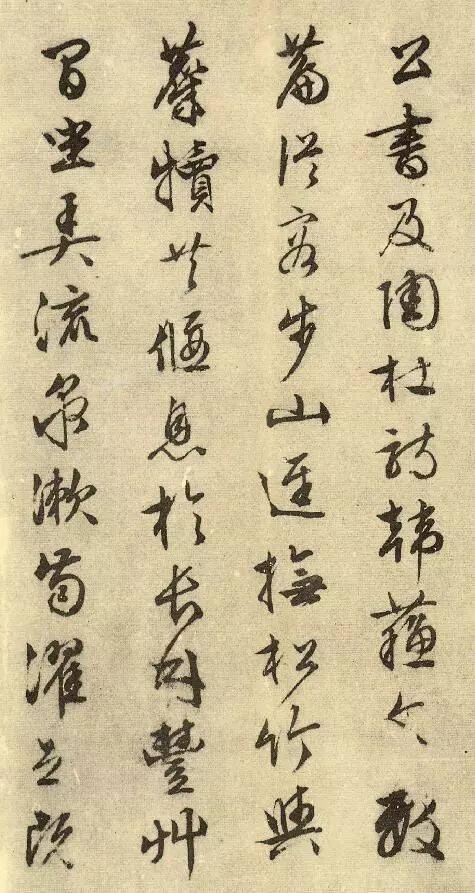 公書及陶杜詩韓蘓文數
篇從容步山逕撫松竹與
麛犢共偃息於長林豐艸
間坐弄流泉漱齒濯足既